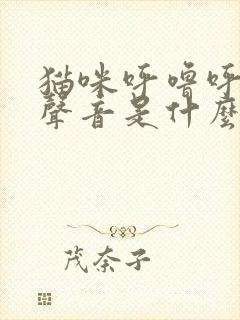 猫咪呼嚕呼
聲音是什麼
茂奈子